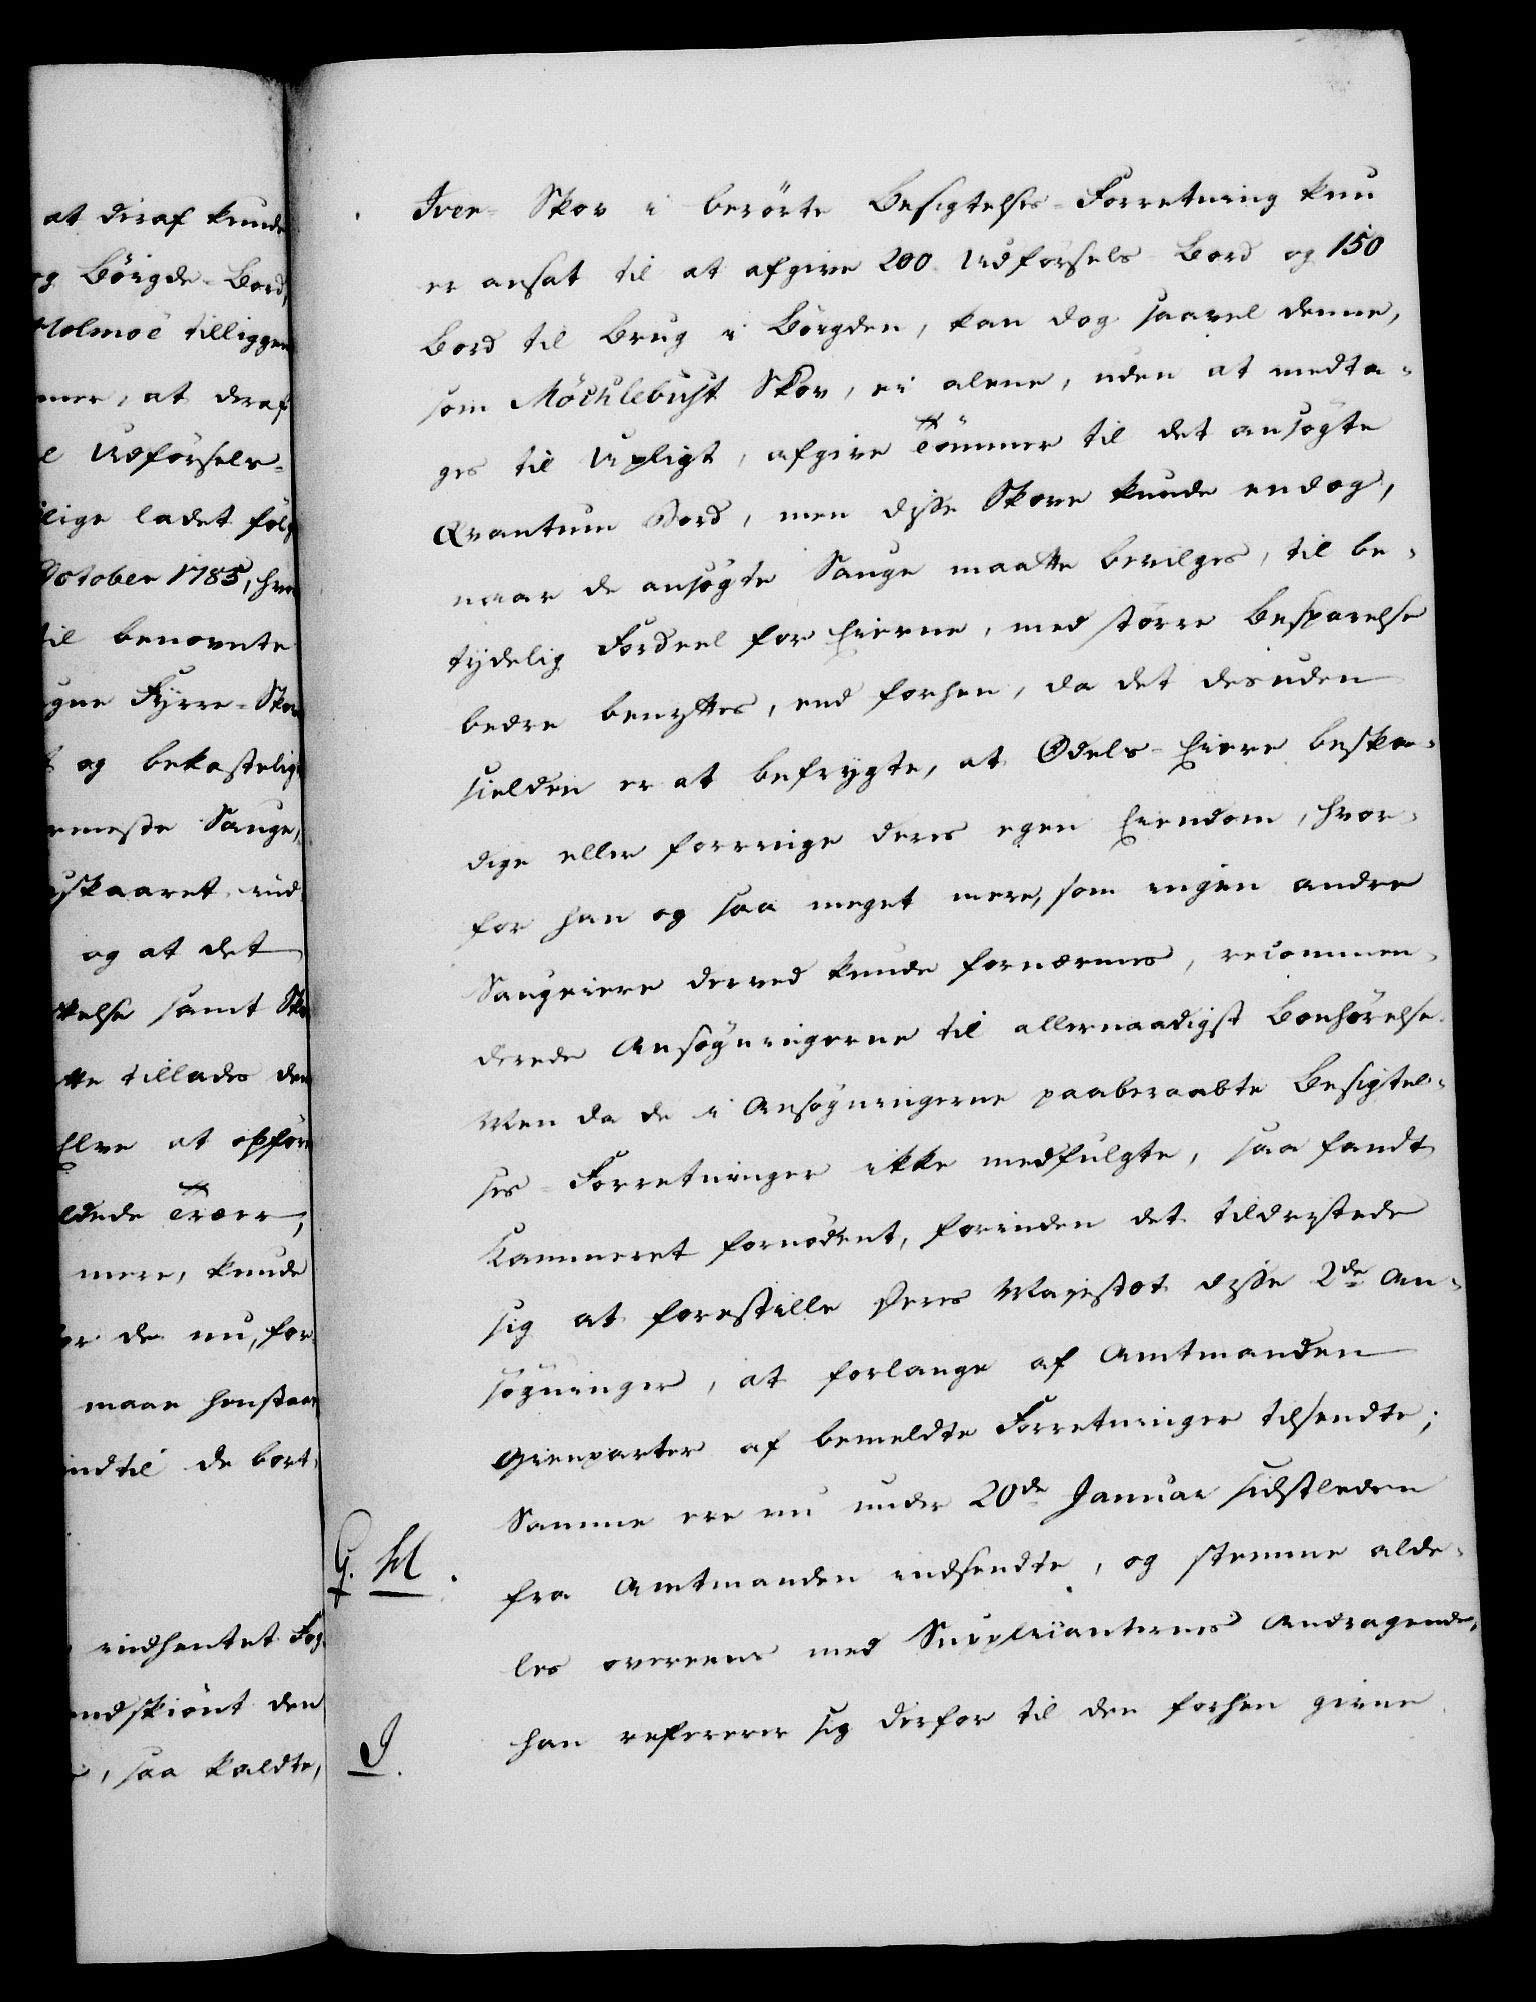 at deraf kunde
og Böigde-Bord,
Holmöe tilliggen
mer, at deraf
l Udförsels-
lige ladet fölg
October 1785, hvor
til benævnte
gne Fyrre-Skov
t og bekostelig
rmeste Sauge,
uskaaret ind
og at det
kelse samt Sko
tte tillades dem
Elve at opföre
ldede Træer,
mere, kunde
or de nu, for
maae henstaae
indtil de bort-
indhentet Fog
endskiönt den
, saa kaldte,
Iver-Skov i berörte Besigtelses-Forretning kun
er ansat til at afgive 200 Udförsels-Bord og 150
Bord til Brug i Böigden, kan dog saavel denne,
som Möchlebust Skov, ei alene, uden at medta-
ges til Upligt, afgive Tömmer til det ansögte
Qvantum Bord, men disse Skove kunde endog,
naar de ansögte Sauge maatte bevilges, til be-
tydelig Fordeel for Eierne, med större Besparelse
bedre benyttes, end forhen, da det desuden
sielden er at befrygte, at Odels-Eiere beska-
dige eller forringe deres egen Eiendom, hvor-
for han og saa meget mere, som ingen andre
Saugeiere derved kunde fornærmes, recommen-
derede Ansögningerne til allernaadigst Bönhörelse.
Men da de i Ansögningerne paaberaabte Besigtel-
ses-Forretninger ikke medfulgte, saa fandt
Kammeret fornödent, forinden det tilderstede
sig at forestille Deres Majestæt disse 2de An-
sögninger, at forlange af Amtmanden
Gienparter af bemeldte Forretninger tilsendte;
Samme ere nu under 20de Januar sidstleden
G. H.
fra Amtmanden indsendte, og stemme alde-
les overeens med Supplicanternes Andragende,
han refererer sig derfor til den forhen givne
I.